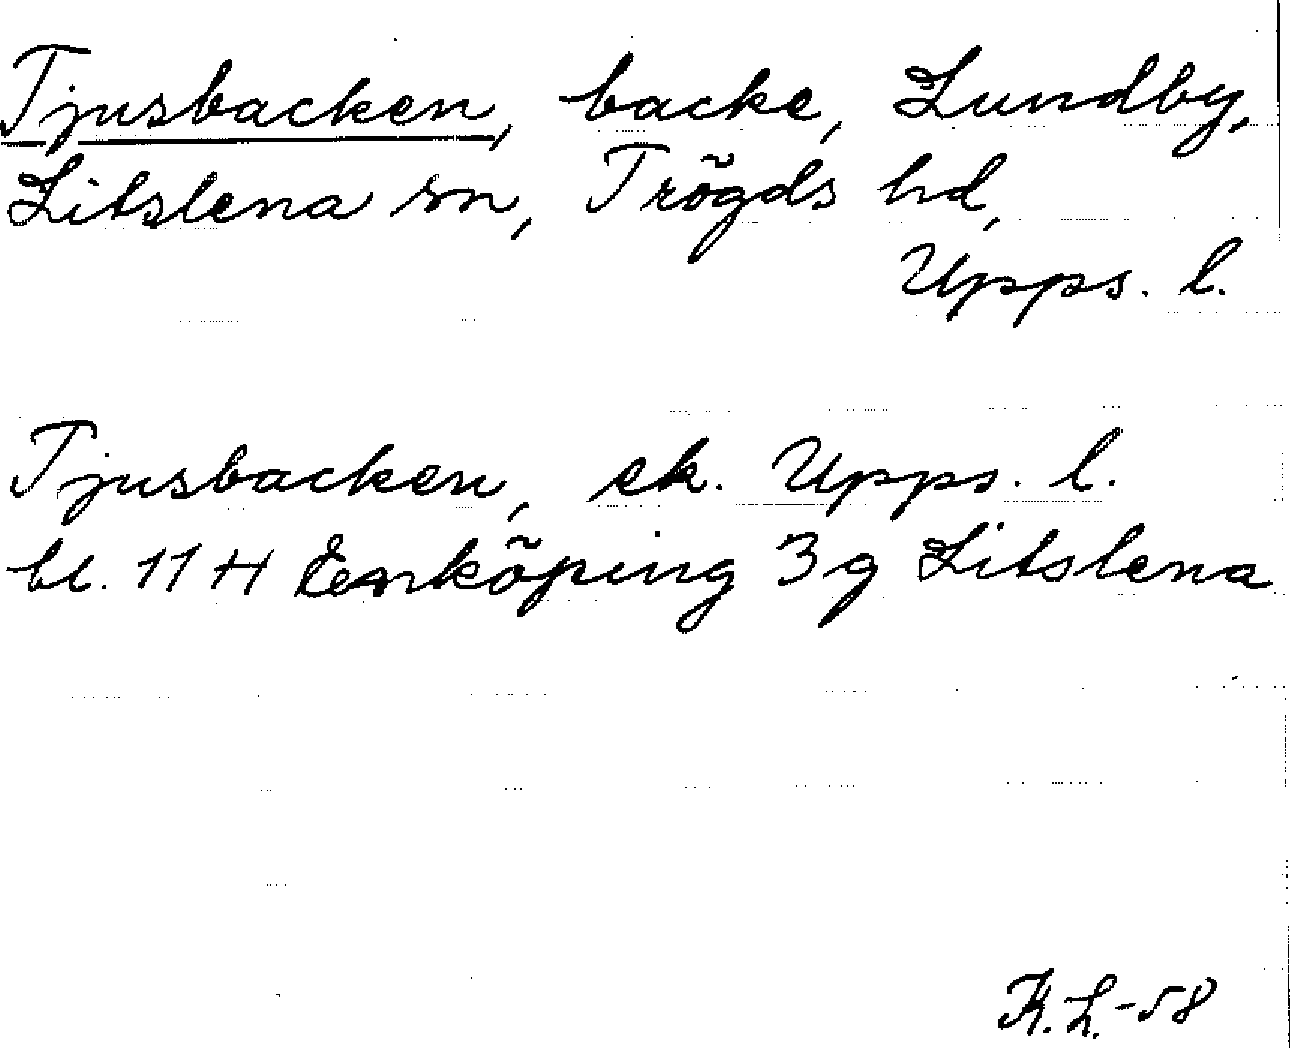 Tjusbacken, backe, Lundby,
Litslena sn, Trögds hd,
Upps. l.
Tjusbacken, ek. Upps. l.
bl. 11 H Enköping 3 g Litslena
K. L. -58